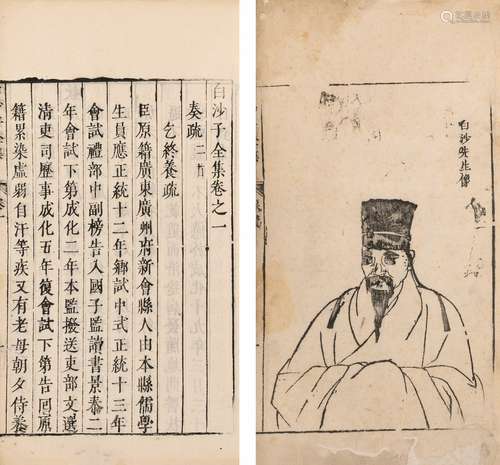 白沙子全集卷之一
奏疏二首
乞終養疏
臣原籍廣東廣州府新會縣人由本縣儒學
生員應正統十二年鄉試中式正統十三年
會試禮部中副榜告入國子監讀書景泰二
年會試下第成化二年本監撥送吏部文選
清吏司歷事成化五年復會試下第告囘原
籍累染虛弱自汗等疾又有老母朝夕侍養
白沙先生像